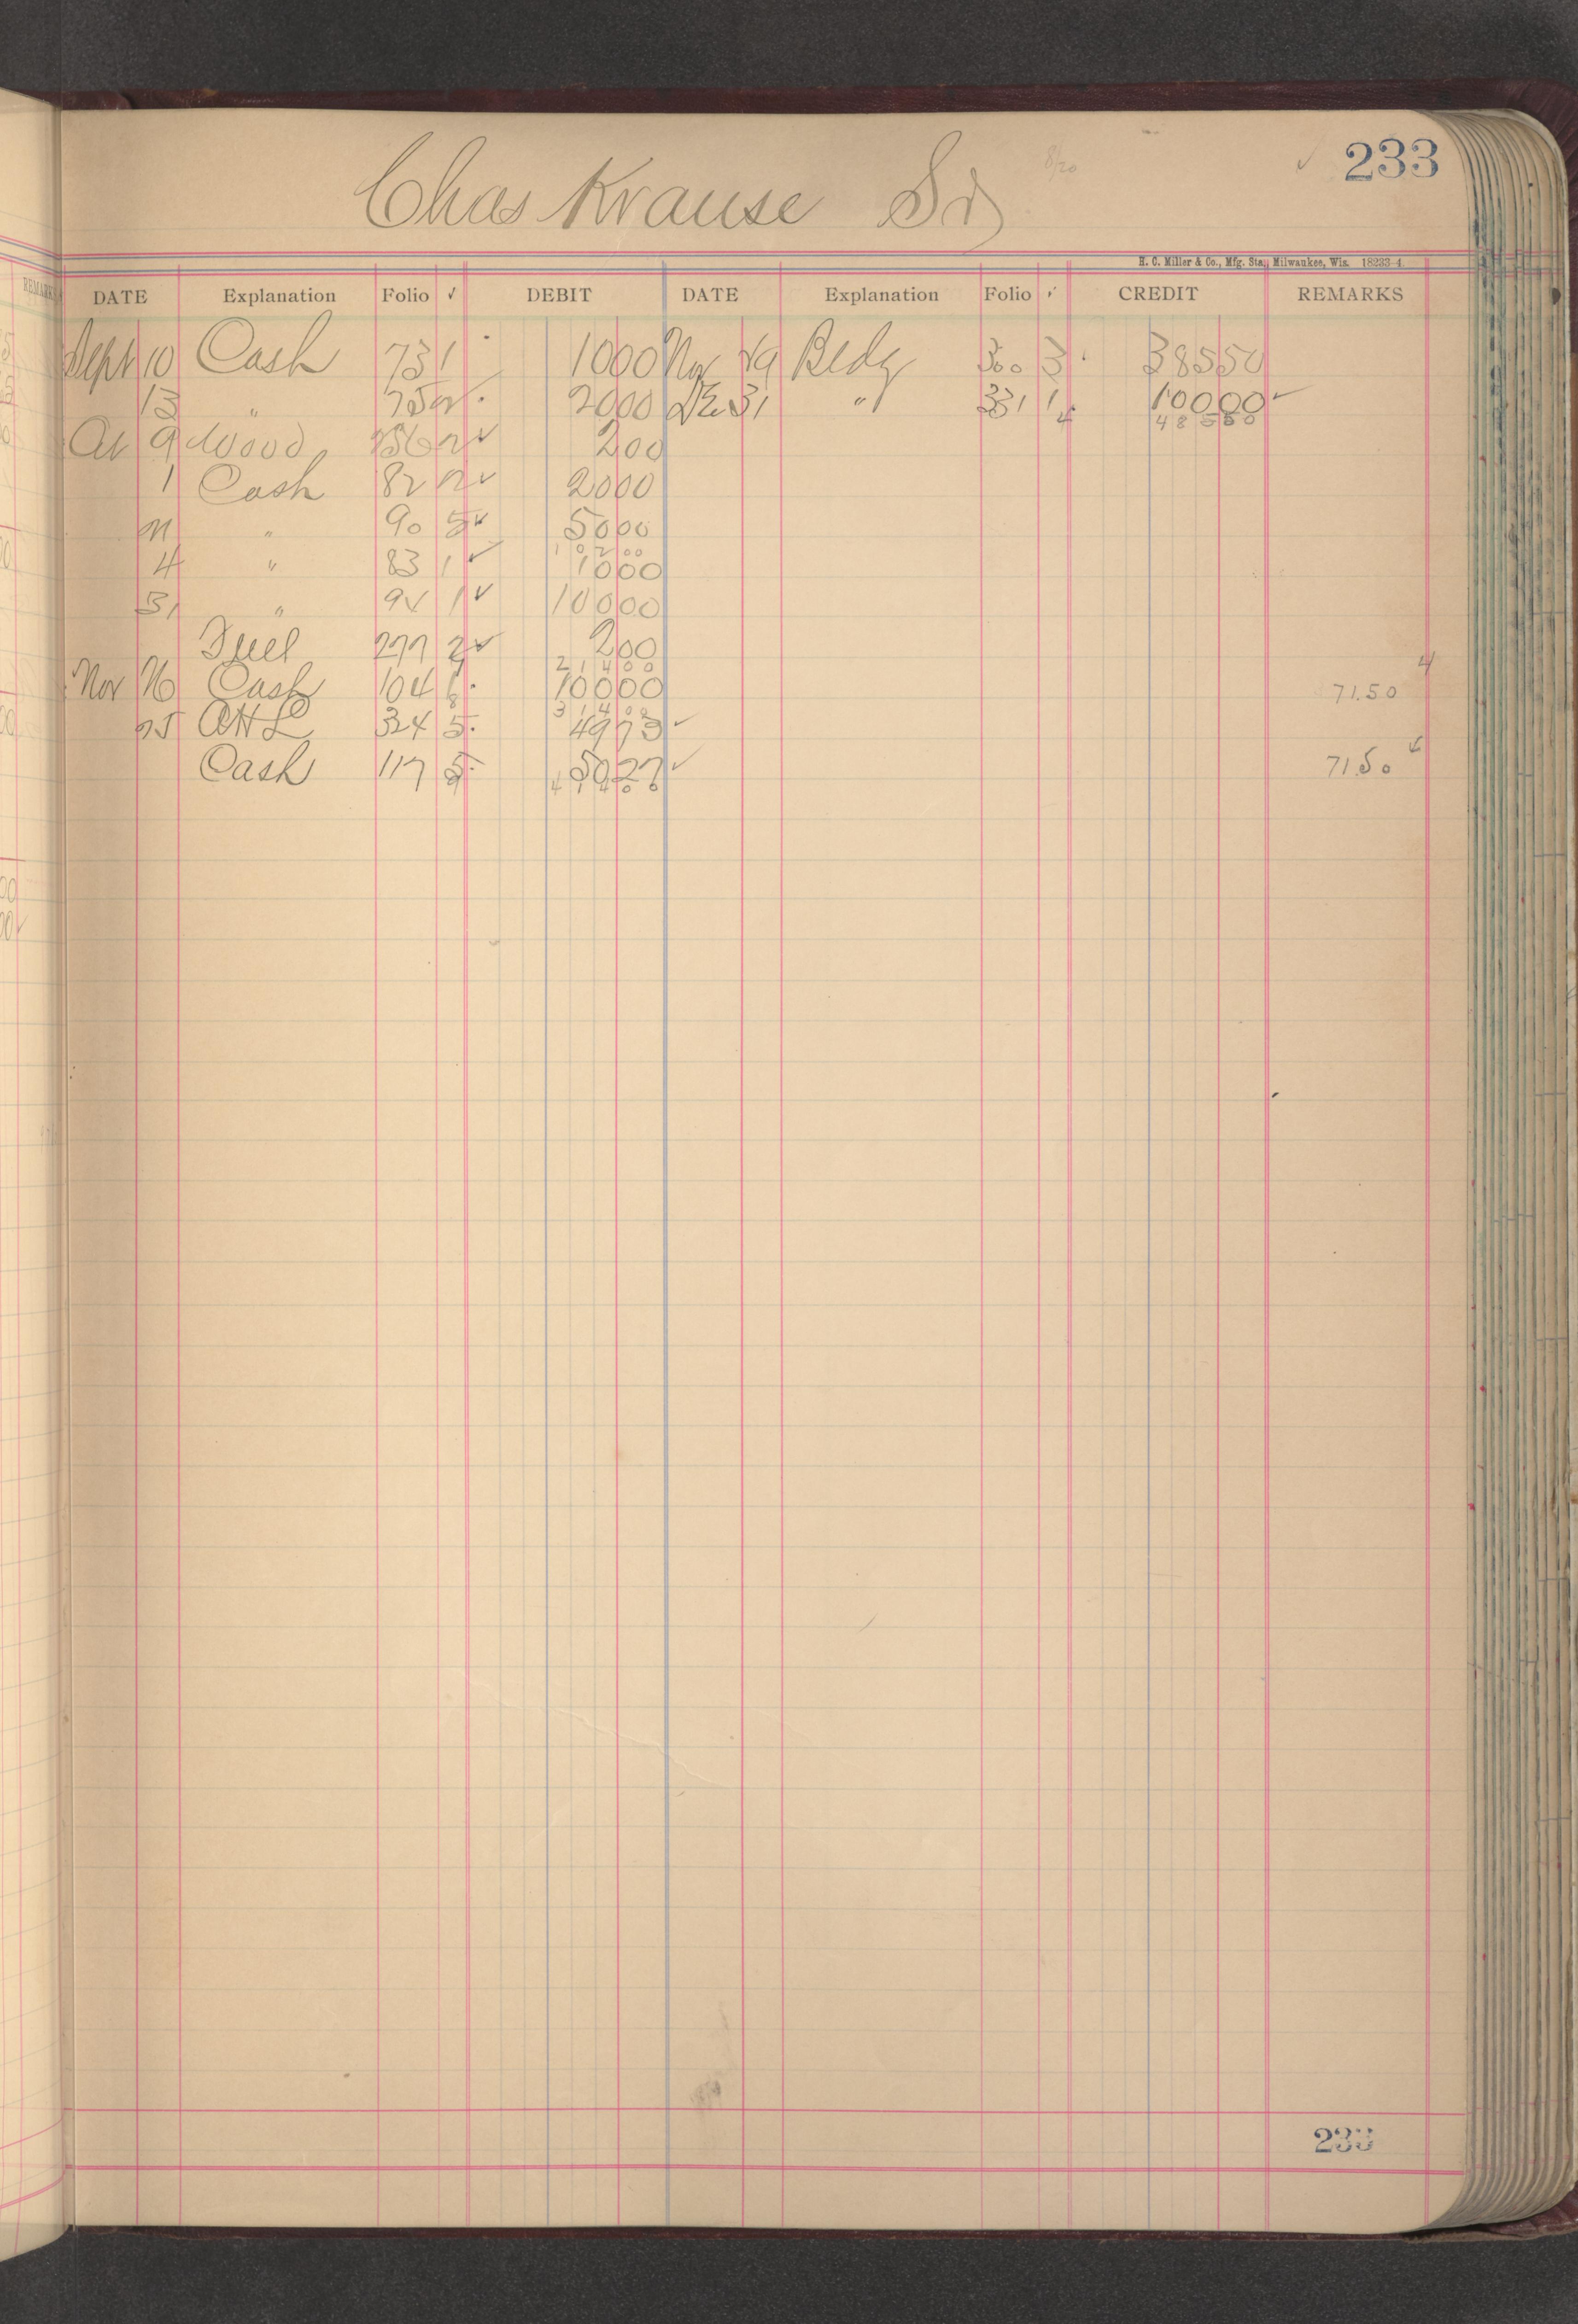 233
Chas Krause Sr
8/20
H. C. Miller & Co., Mfg. Sta., Milwaukee, Wis. 18233-4
DATE Explanation Folio ✓ DEBIT DATE Explanation Folio ✓ CREDIT REMARKS
Sept 10 Cash 73 1 1000 Nov 19 Bldg 300 3 38550
13 " 75 2 2000 Dec 31 " 331 1 10000 ✓
48550
9 Wood 256 2 ✓ 200
1 Cash 82 2 ✓ 2000
21 " 90 5 ✓ 5000
10200
4 " 83 1 ✓ 1000
31 " 94 1 ✓ 10000
Fuel 277 2 ✓ 200
21400
Nov 16 Cash 104 6 10000 71.50
31400
25 OHL 324 5 4973 ✓
Cash 117 5 5027 ✓ 71.50
41400
233